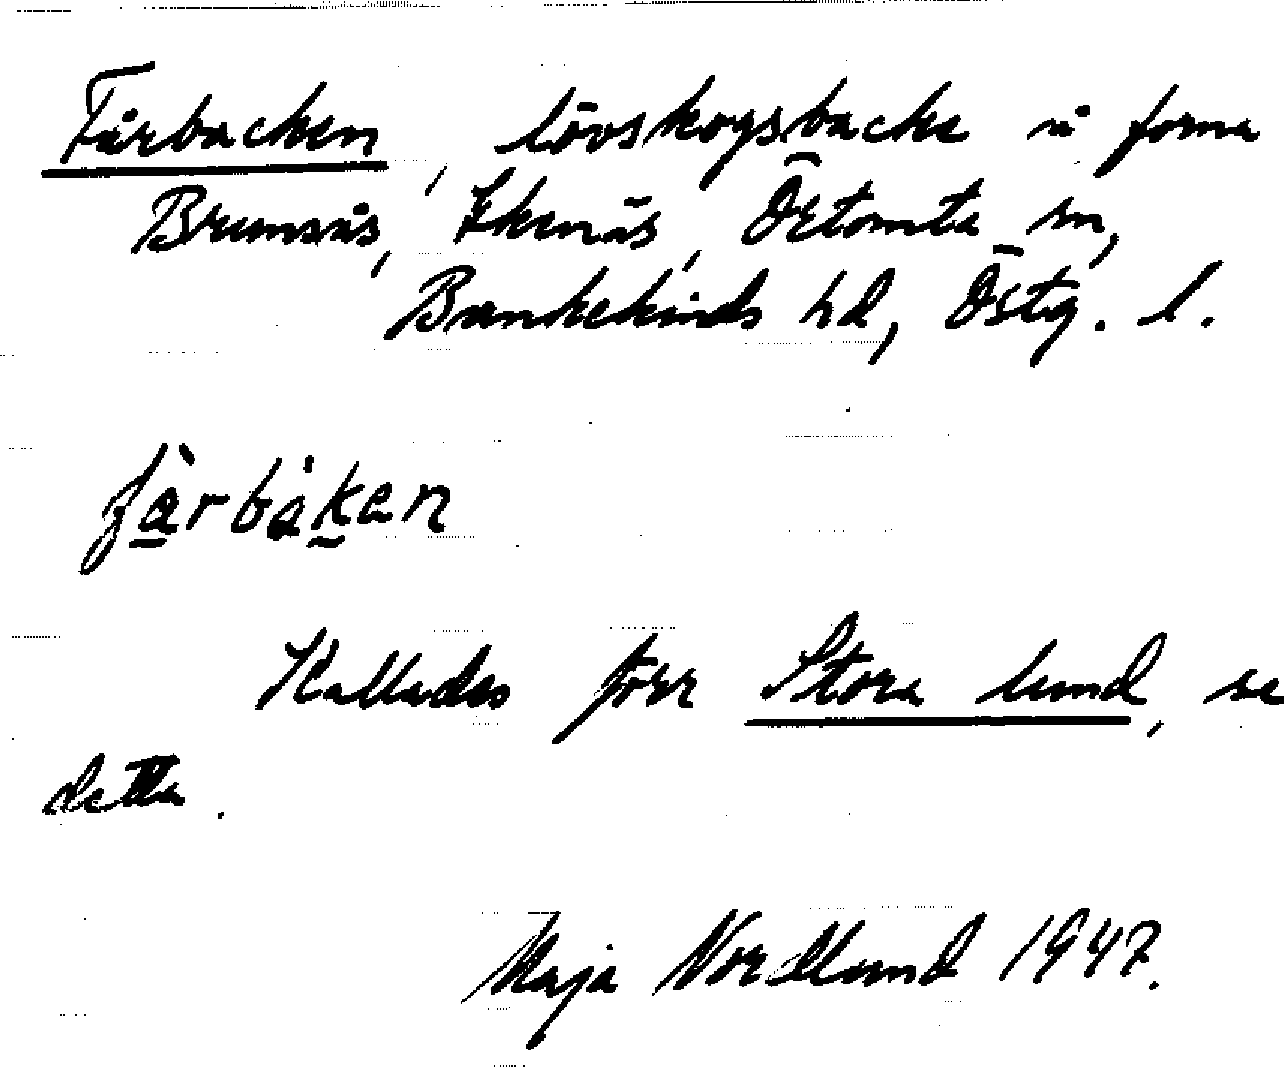 Fårbacken, lövskogsbacke i forna
Brunsnäs, Ekenäs, Örtomta sn,
Bankekinds hd, Östg. l.
fàrbákan
Kallades förr Stora lund, se
detta.
Maja Nordlund 1947.